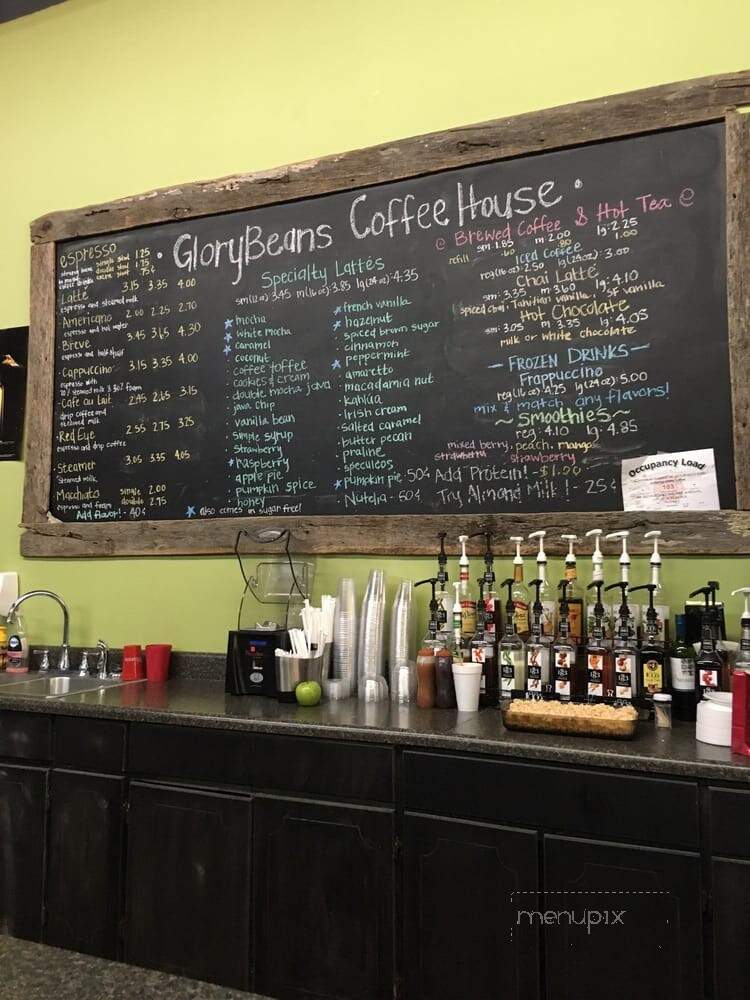 GloryBeans Coffee House
espresso
single shot 1.25
double shot 1.75
extra shot 75¢
Latte 3.15 3.35 4.00
espresso and steamed milk
Americano 2.00 2.25 2.70
espresso and hot water
Breve 3.45 3.65 4.30
espresso and half & half
Cappuccino 3.15 3.35 4.00
espresso with
steamed milk & foam
Cafe au Lait 2.45 2.65 3.15
drip coffee and
steamed milk
Red Eye 2.55 2.75 3.25
espresso and drip coffee
Steamer 3.05 3.35 4.05
Steamed milk
Macchiato single 2.00
espresso and foam double 2.75
Add flavor! - 40¢
Specialty Lattés
sm (12oz) 3.45 m (16oz) 3.85 lg (24oz) 4.35
mocha
white mocha
caramel
coconut
coffee toffee
cookies & cream
double mocha java
java chip
vanilla bean
simple syrup
strawberry
raspberry
apple pie
pumpkin spice
honey
also comes in sugar free!
french vanilla
hazelnut
spiced brown sugar
cinnamon
peppermint
amaretto
macadamia nut
kahlúa
Irish cream
salted caramel
butter pecan
praline
speculoos
pumpkin pie 50¢
Nutella - 60¢
Brewed Coffee & Hot Tea
sm 1.85 m 2.00 lg 2.25
refill .60 .80 1.00
Iced Coffee
reg (16oz) 2.50 lg (24oz) 3.00
Chai Latte
sm: 3.35 m 3.60 lg: 4.10
spiced chai, Tahitian vanilla, SF vanilla
Hot Chocolate
sm: 3.05 m 3.35 lg: 4.05
milk or white chocolate
FROZEN DRINKS
Frappuccino
reg (16oz) 4.25 lg (24oz) 5.00
mix & match any flavors!
Smoothies
reg: 4.10 lg: 4.85
mixed berry, peach, mango
strawberry strawberry
Add Protein! - $1.00
Try Almond Milk! - 25¢
Occupancy Load
103
menupix